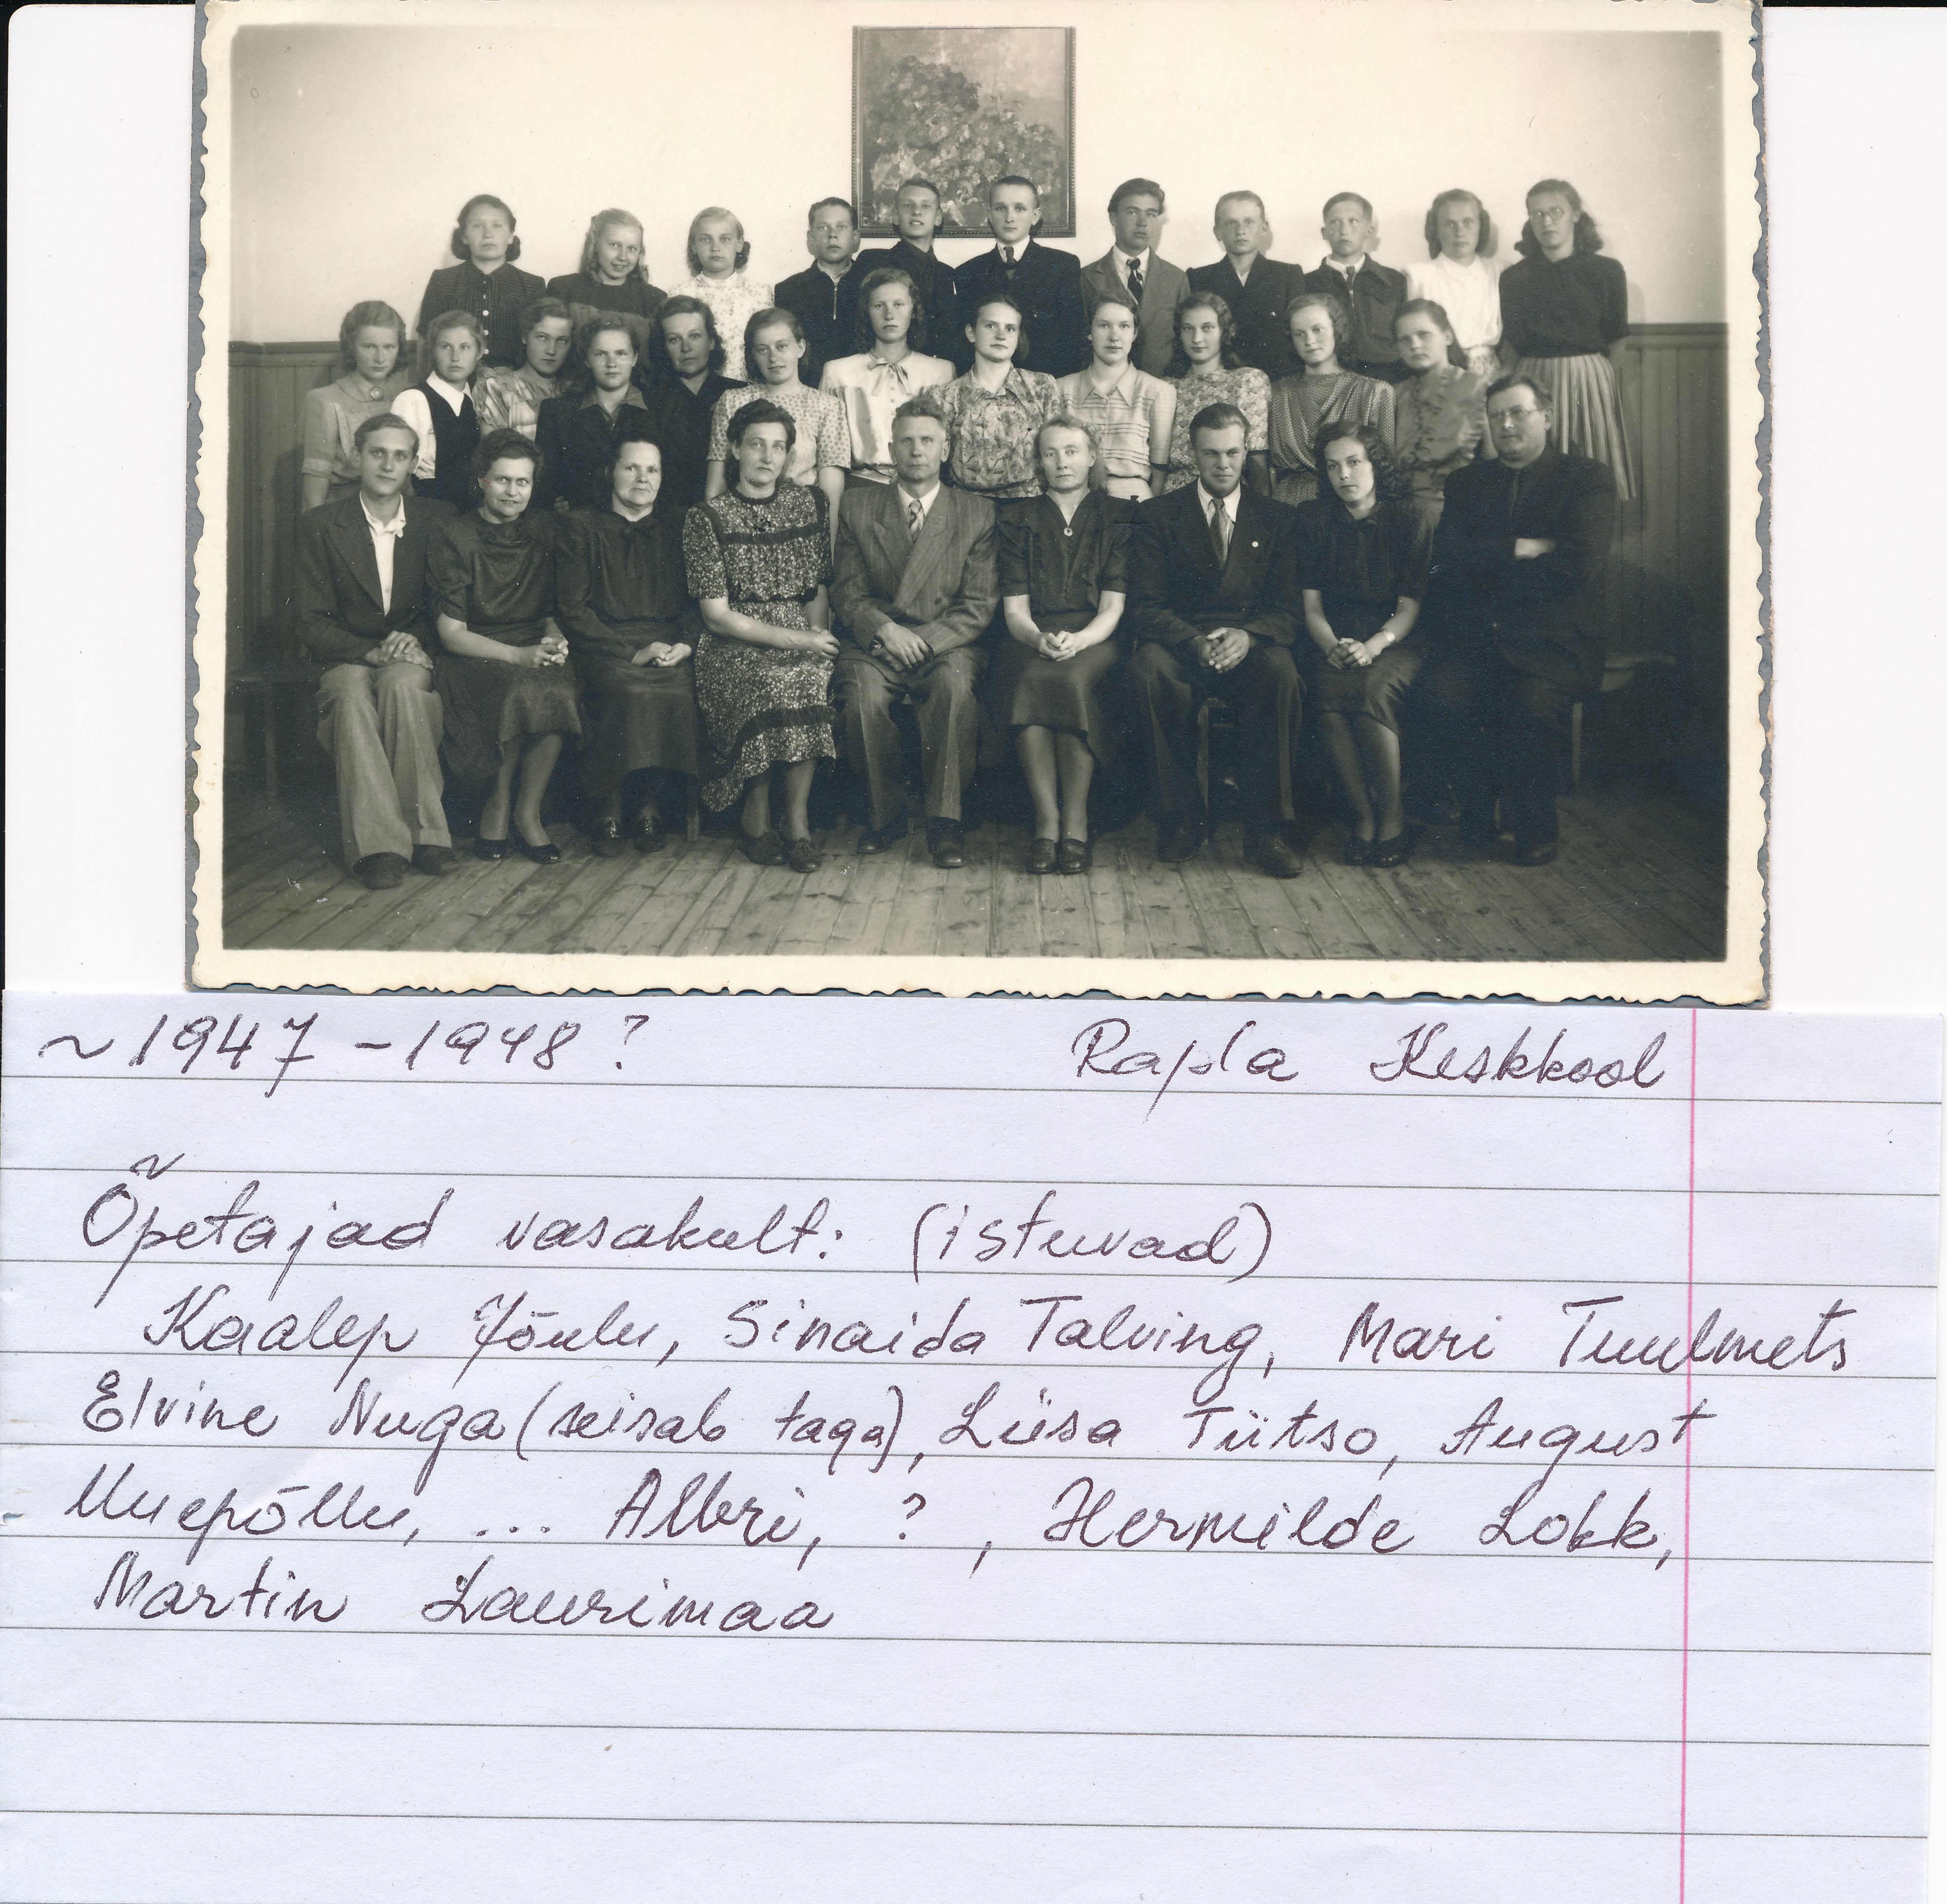 ~1947-1948? Rapla Keskkool
Õpetajad vasakult: (istuvad)
Kaalep Jõulu, Sinaida Talving, Mari Tuulmets
Elvine Nuga (seisab taga), Liisa Tiitso, August
Uuepõllu, ... Allori, ?, Hermilde Lokk,
Martin Laurimaa